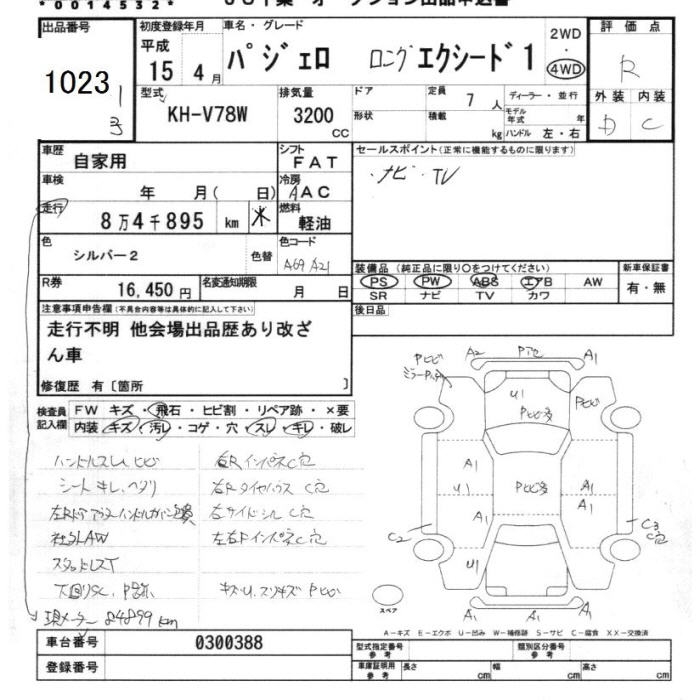 *0014532*
出品番号
1023
1
3
初度登録年月
平成
15年 4月
車名・グレード
パジェロ ロング エクシード1
2WD
・
4WD
評価点
R
外装 内装
D C
型式
KH-V78W
排気量
3200
CC
ドア
形状
定員 7 人
積載 kg
ディーラー・並行
モデル年式 年
ハンドル 左・右
車歴
自家用
シフト
FAT
車検
年 月( 日)
冷房
AAC
走行
8万4千895 km
*
燃料
軽油
色
シルバー2
色替
色コード
A69 A21
R券
16,450 円
名変通知期限
月 日
セールスポイント(正常に機能するものに限ります)
・ナビ・TV
装備品 (純正品に限り○をつけてください)
PS PW ABS エアB AW
SR ナビ TV カワ
新車保証書
有・無
後日品
注意事項申告欄(不具合内容等は具体的に記入して下さい)
走行不明 他会場出品歴あり改ざ
ん車
修復歴 有〔箇所 〕
検査員
記入欄
FW キズ・飛石・ヒビ割・リペア跡・×要
内装 キズ・汚レ・コゲ・穴・スレ・キレ・破レ
ハンドルスレ、ヒビ
シートキレ、ヘタリ
社外AW
スタッドレスT
右RインパネC穴
右RタイヤハウスC穴
右サイドシルC穴
左右FインパネC穴
キズ・U、スリキズ Pヒビ
現メーター 84899km
Pヒビ
A2
A1
U1
Pヒビ多
Pヒビ
A1
U1
A1
Pヒビ多
A1
A1
C2
C3
C穴
U1
A1
A1
A1
スペア
A-キズ E-エクボ U-凹み W-補修跡 S-サビ C-腐食 XX-交換済
車台番号
0300388
登録番号
型式指定番号
参考
類別区分番号
参考
車庫証明用
参考
長さ cm
幅 cm
高さ cm